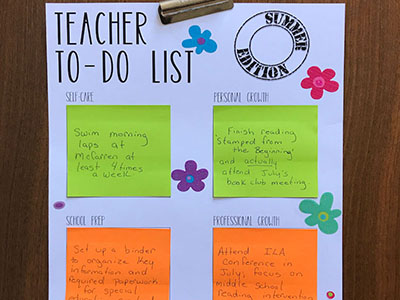 TEACHER
TO-DO LIST
SUMMER
EDITION
SELF-CARE
Swim morning
laps at
McCarren at
least 4 times
a week
PERSONAL GROWTH
Finish reading
'Stamped from
the Beginning'
and actually
attend July's
book club meeting
SCHOOL PREP
Set up a binder
to organize key
information and
required paperwork
for special
PROFESSIONAL GROWTH
Attend ILA
Conference in
July; focus on
middle school
reading intervention